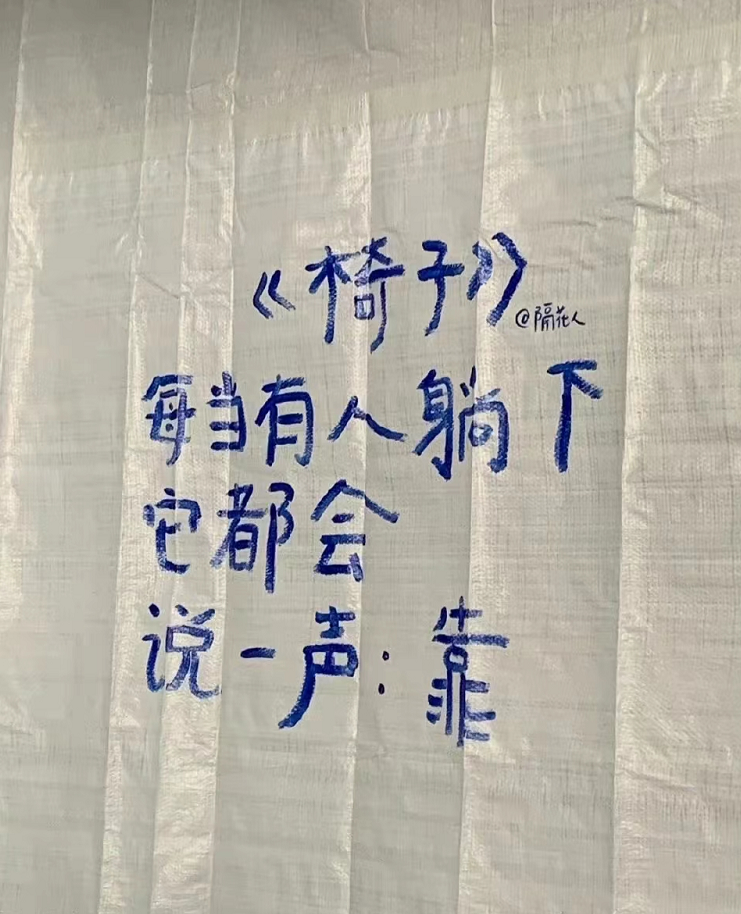 《椅子》
@隔花人
每当有人躺下
它都会
说一声：靠